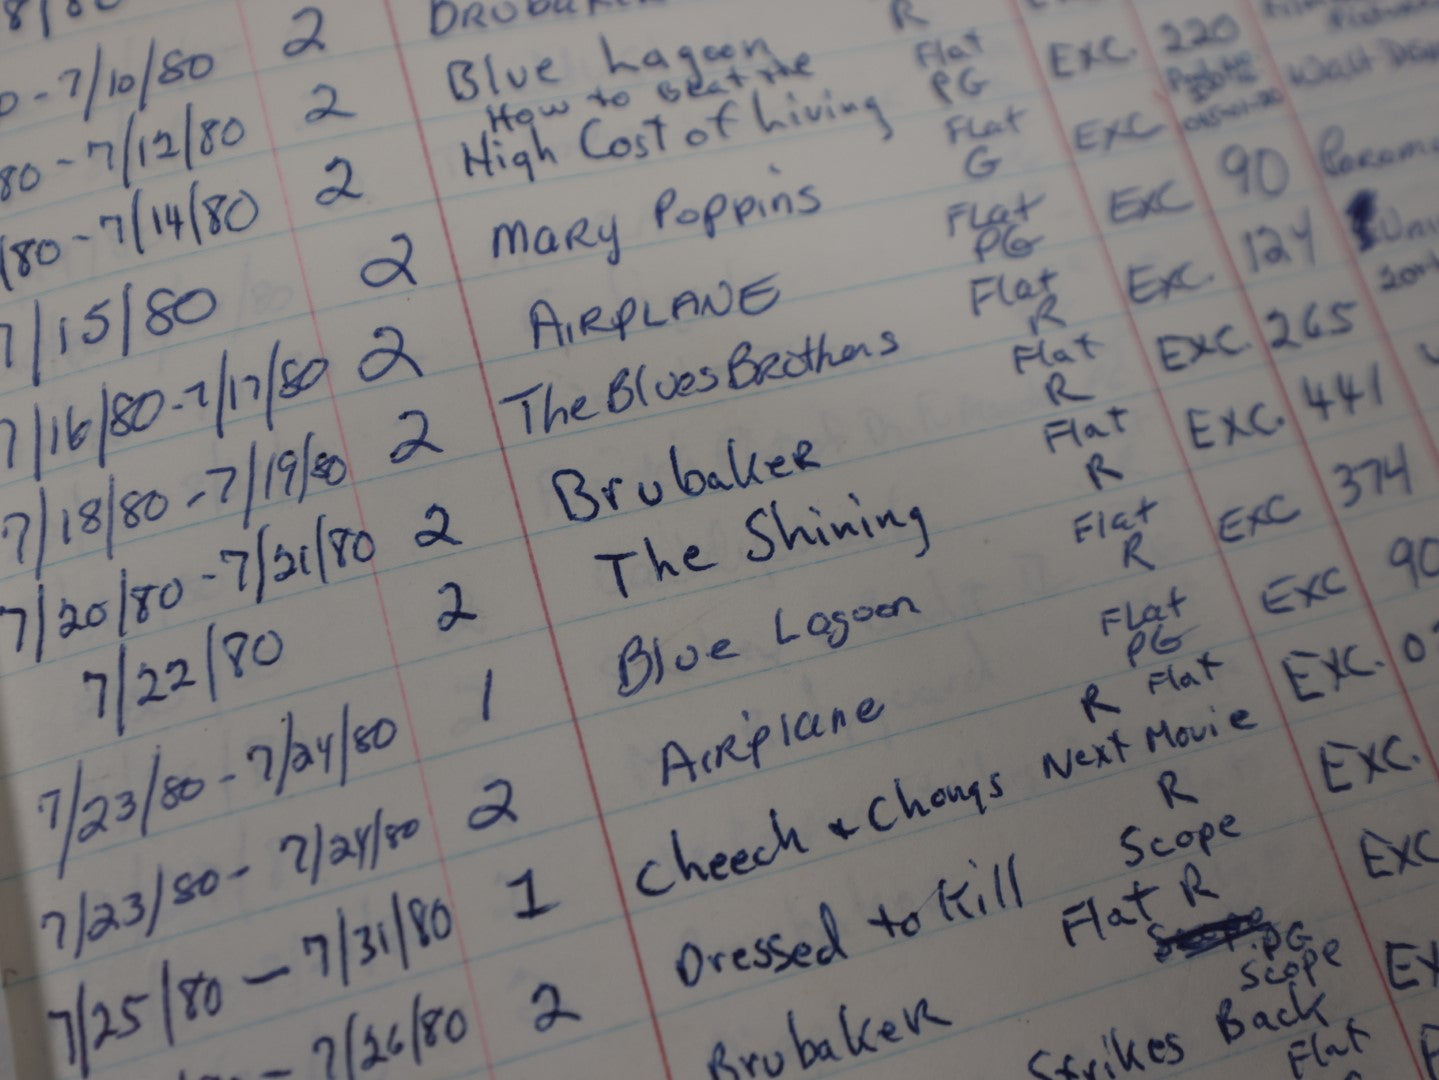 BRUBAKER R
- 7/10/80 2 Blue Lagoon Flat EXC. 220
PG
How to Beat the
80 - 7/12/80 2 High Cost of Living Flat EXC
G
/80 - 7/14/80 2 Mary Poppins Flat EXC 90
PG
7/15/80 2 AIRPLANE Flat EXC. 124
R
7/16/80 - 7/17/80 2 The Blues Brothers Flat EXC. 265
R
7/18/80 - 7/19/80 2 Brubaker Flat EXC. 441
R
7/20/80 - 7/21/80 2 The Shining Flat EXC 374
R
7/22/80 2 Blue Lagoon Flat EXC 90
PG
7/23/80 - 7/24/80 1 Airplane R Flat EXC.
7/23/80 - 7/24/80 2 Cheech & Chongs Next Movie EXC.
R
7/25/80 - 7/31/80 1 Dressed to Kill Scope EXC
R
- 7/26/80 2 Brubaker Flat
PG
Scope
Strikes Back
Flat